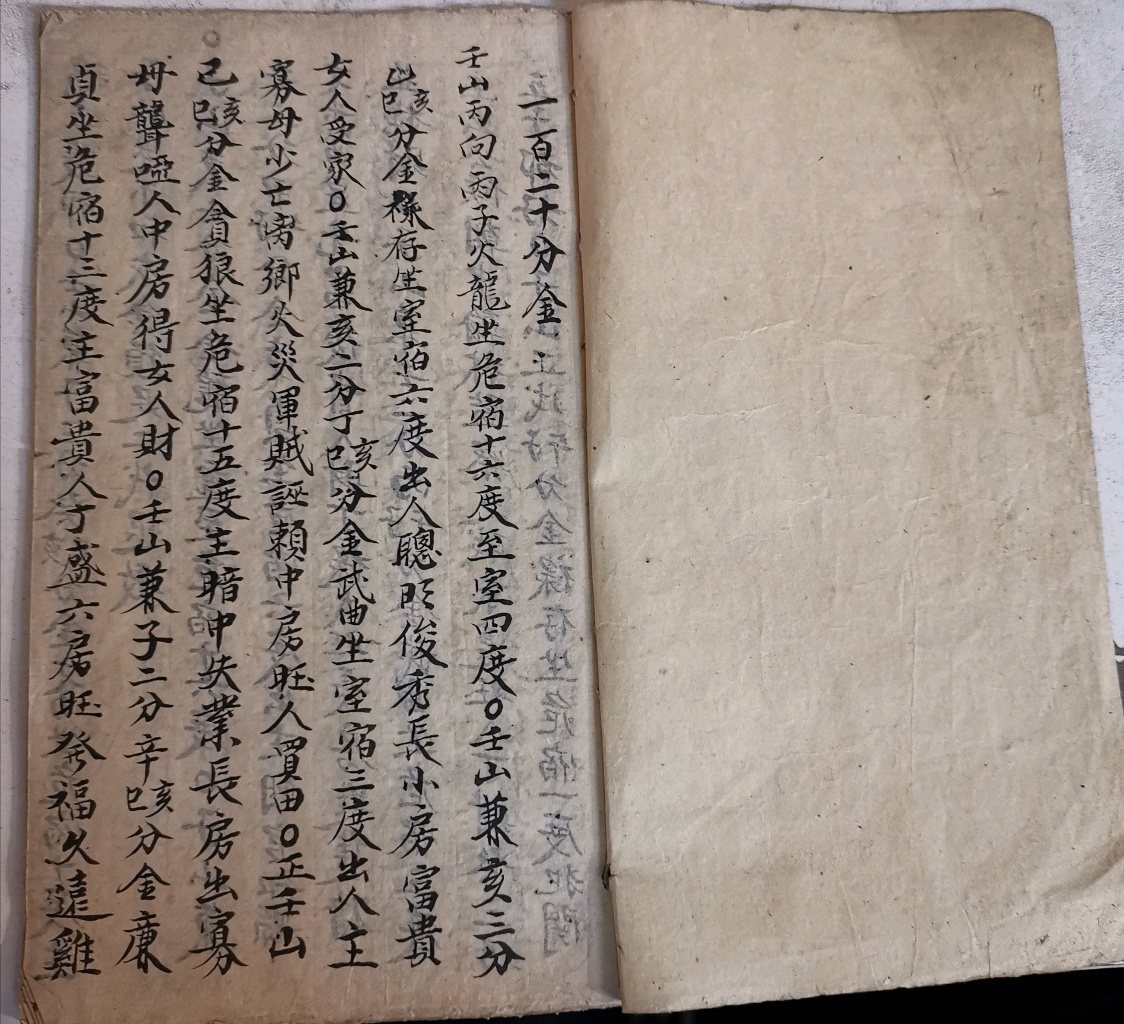 一百二十分金
壬山丙向丙子火龍坐危宿十六度至室四度○壬山兼亥三分
乙巳亥分金祿存坐室宿六度出人聰明俊秀長小房富貴
女人受家○壬山兼亥二分丁巳亥分金武曲坐室宿三度出人主
寡母少亡離鄉火災軍賊誣賴中房旺人買田○正壬山
己巳亥分金貪狼坐危宿十五度主暗中失業長房出寡
母聾啞人中房得女人財○壬山兼子二分辛巳亥分金廉
貞坐危宿十三度主富貴人丁盛六房旺發福久遠雞